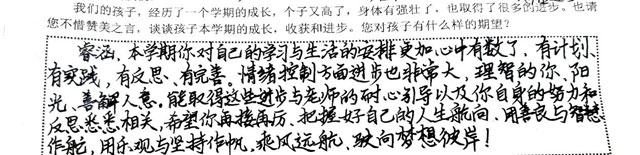 我们的孩子，经历了一个学期的成长，个子又高了，身体有强壮了，也取得了很多的进步。也请
您不惜赞美之言，谈谈孩子本学期的成长，收获和进步。您对孩子有什么样的期望？
睿涵，本学期你对自己的学习与生活的安排更加心中有数了，有计划、
有实践，有反思、有完善。情绪控制方面进步也非常大，理智的你、阳
光、善解人意。能取得这些进步与老师的耐心引导以及你自身的努力和
反思悉悉相关，希望你再接再厉、把握好自己的人生航向，用善良与智慧
作舵，用乐观与坚持作帆，乘风远航、驶向梦想彼岸！